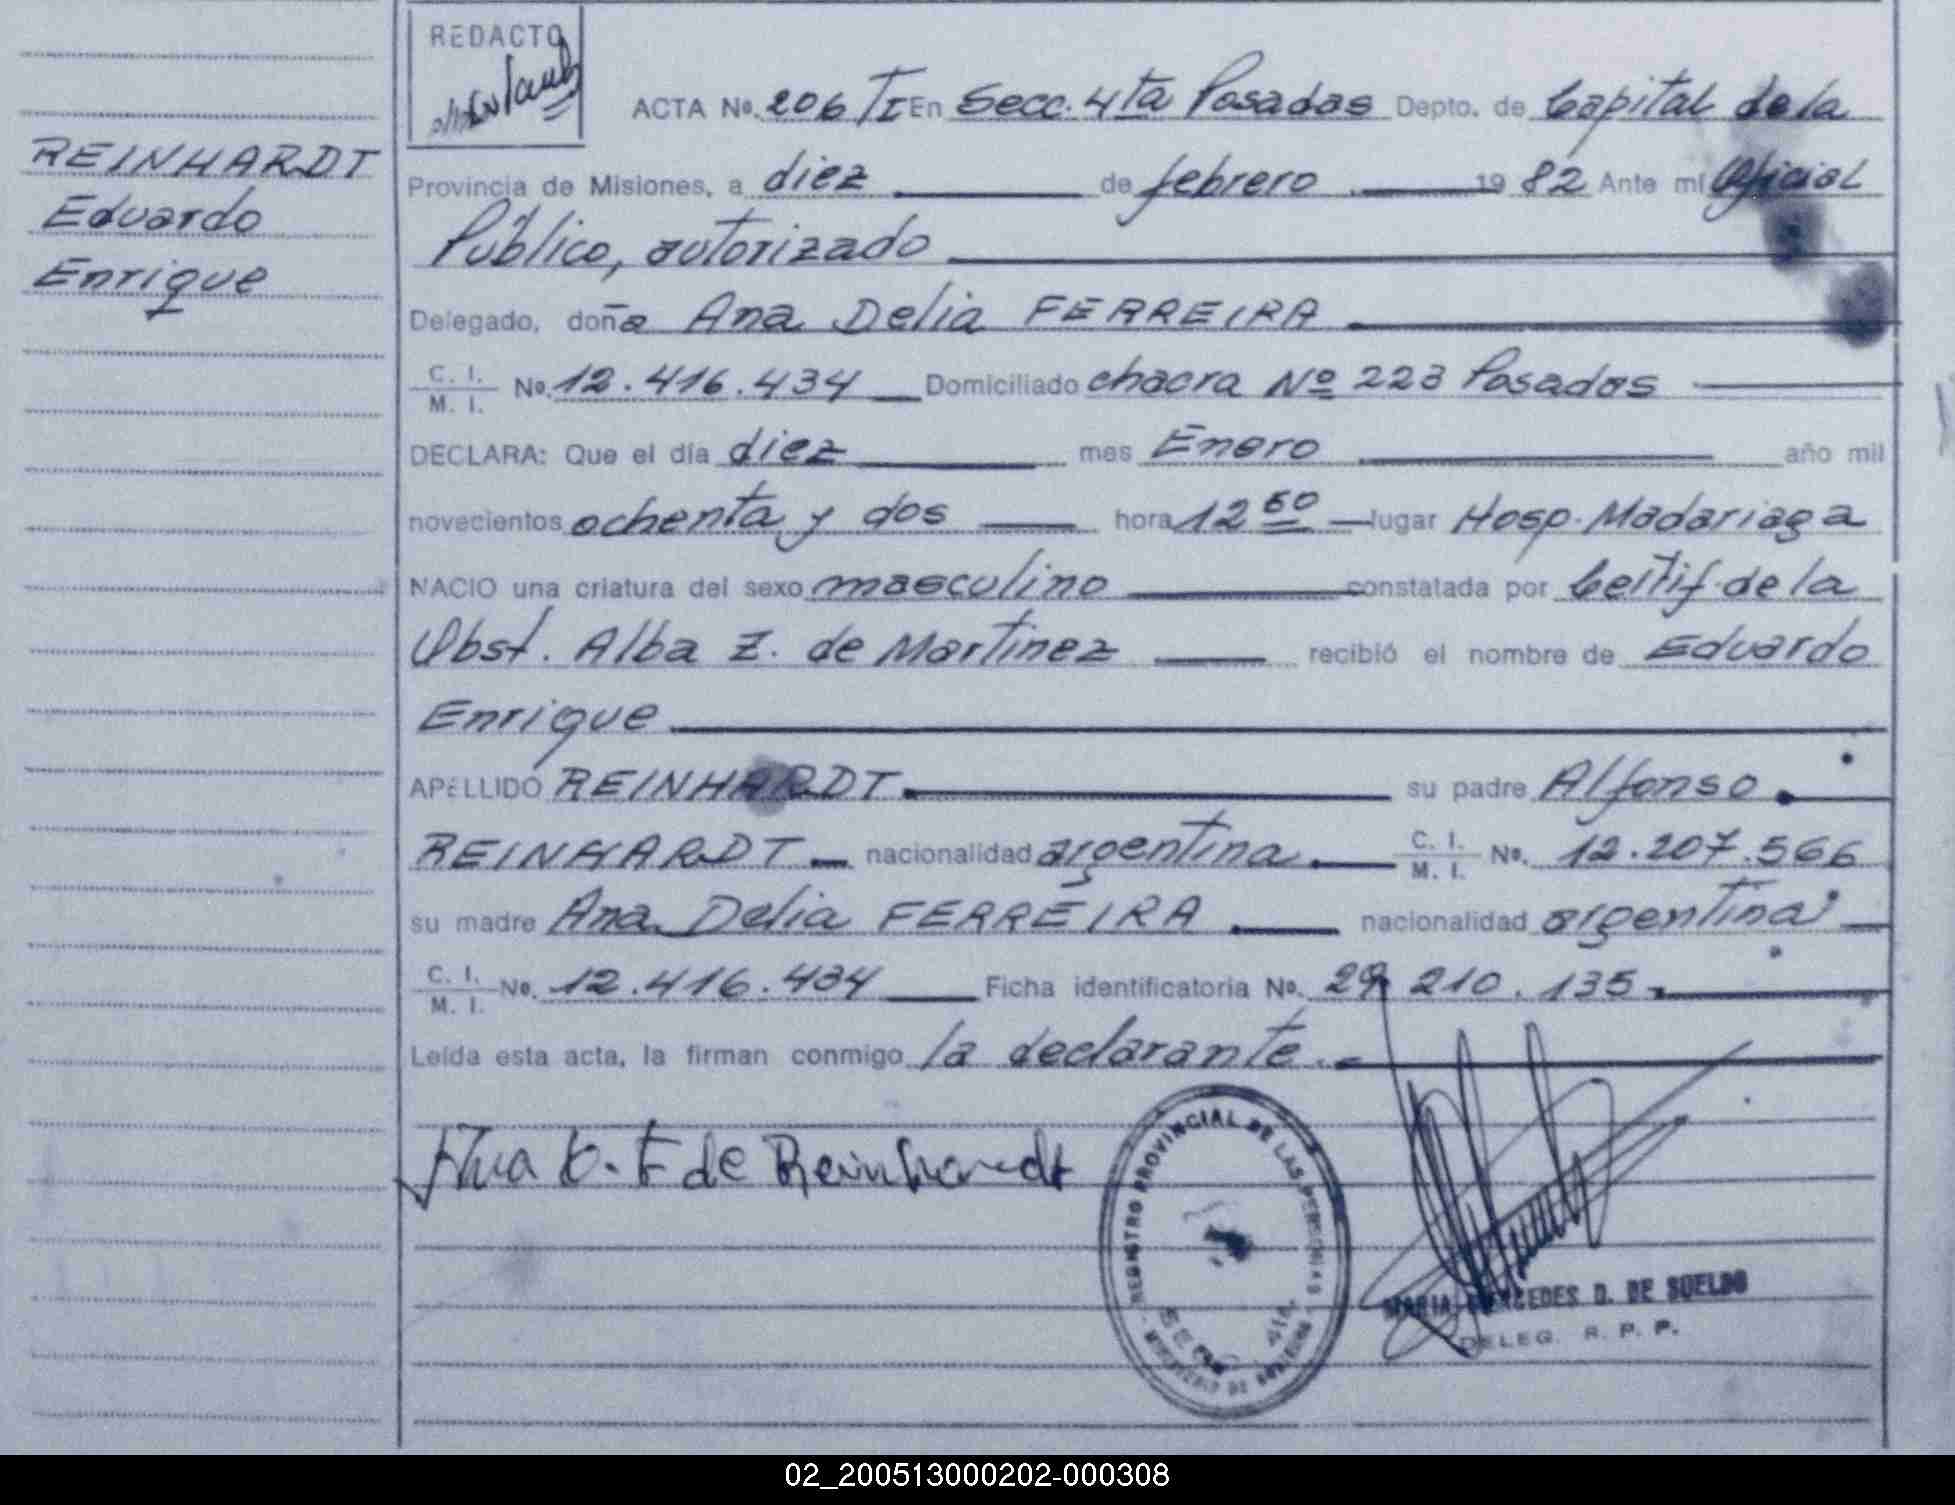 REDACTO
ACTA No. 206 TI En Secc. 4ta Posadas Depto. de Capital de la
REINHARDT
Eduardo
Enrique
Provincia de Misiones, a diez de febrero 19 82 Ante mí Oficial
Público, autorizado
Delegado, doña Ana Delia FERREIRA
C. I.
M. I. No. 12.416.434 Domiciliado chacra Nº 223 Posadas
DECLARA: Que el día diez mes Enero año mil
novecientos ochenta y dos hora 12 50 lugar Hosp. Madariaga
NACIO una criatura del sexo masculino constatada por Certif. de la
Obst. Alba Z. de Martinez recibió el nombre de Eduardo
Enrique
APELLIDO REINHARDT su padre Alfonso
REINHARDT nacionalidad argentina C. I.
M. I. No. 12.207.566
su madre Ana Delia FERREIRA nacionalidad argentina
C. I.
M. I. No. 12.416.434 Ficha identificatoria No. 29.210.135
Leída esta acta, la firman conmigo la declarante.
Ana D. F de Reinhardt
REGISTRO PROVINCIAL DE LAS PERSONAS
MINISTERIO DE GOBIERNO
MARIA MERCEDES D. DE SUELDO
DELEG. R. P. P.
02_200513000202-000308